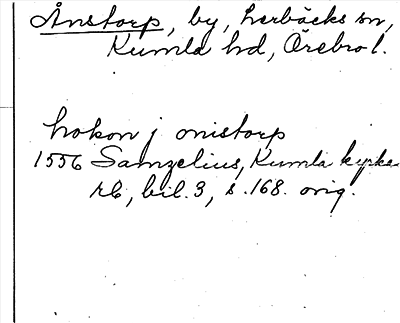 Ånstorp, by, Lerbäcks sn,
Kumla hd, Örebro l.
hokon j onistorp
1556 Samzelius, Kumla kyrka
rb, bil. 3, s. 168. orig.